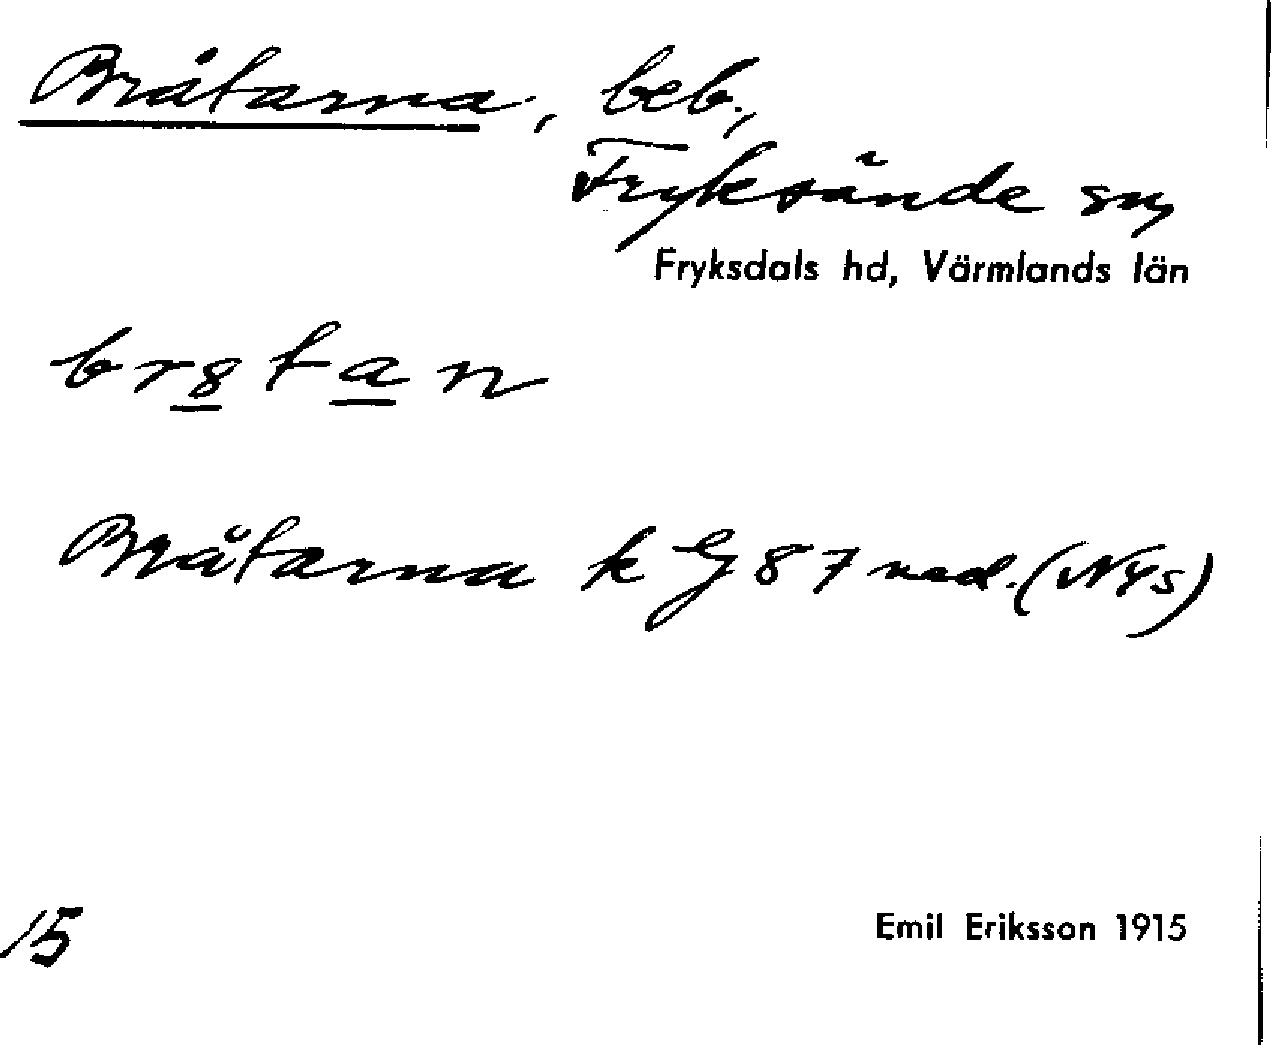 Bråtarna, beb.,
Fryksände sn,
Fryksdals hd, Värmlands län
br8tan
Bråtarna k GJ 87 ned. (NYs)
15
Emil Eriksson 1915